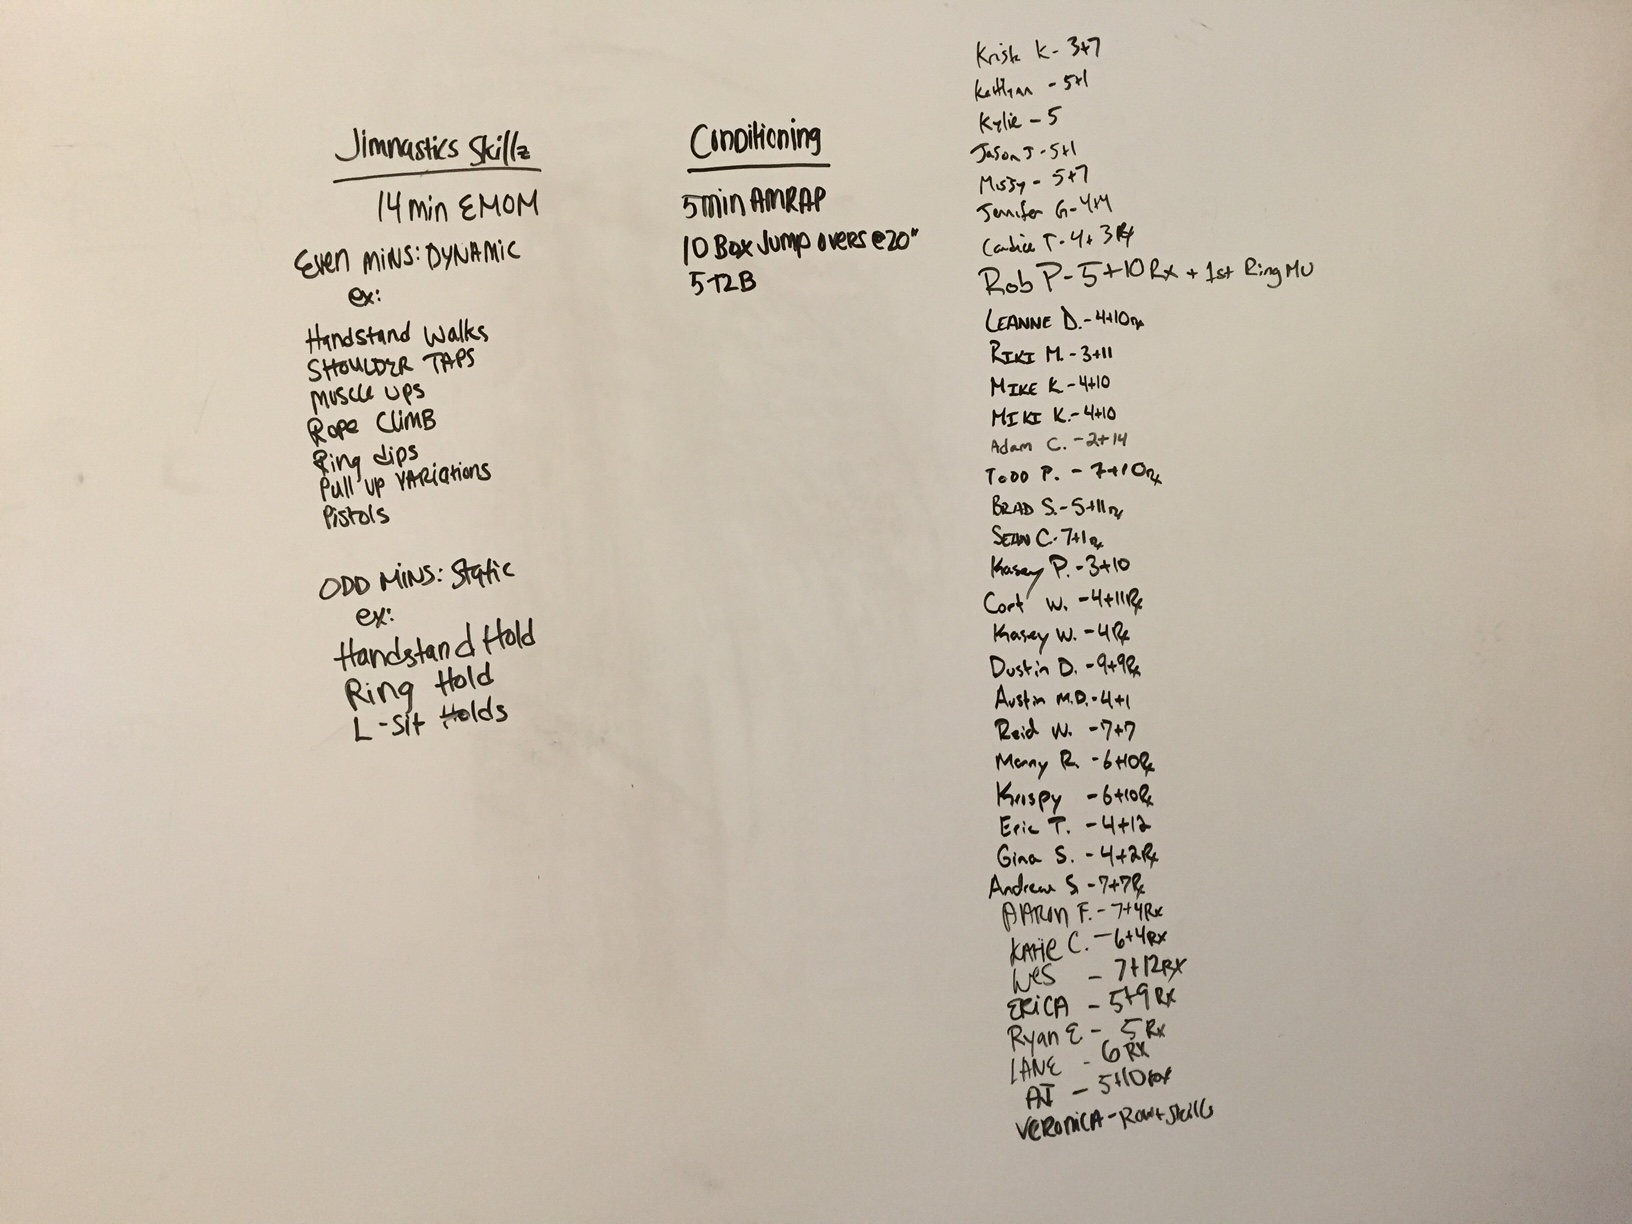 Jimnastics Skillz
14 min EMOM
Even mins: DYNAMIC
ex:
Handstand Walks
SHOULDER TAPS
Muscle ups
Rope Climb
Ring dips
Pull up VARiations
Pistols
ODD MiNS: Static
ex:
Handstand Hold
Ring Hold
L-Sit Holds
Conditioning
5min AMRAP
10 Box Jump overs @ 20"
5 T2B
K- 3+7
Kaitlynn - 5+1
Kylie - 5
Jason J - 5+1
Missy - 5+7
Jennifer G- 4+4
Candice T- 4+3 Rx
Rob P- 5+10 Rx + 1st Ring MU
LEANNE D.- 4+10 Rx
RIKI M. - 3+11
MIKE K - 4+10
MIKI K.- 4+10
Adam C. - 2+14
TODD P. - 7+10 Rx
BRAD S.- 5+11 Rx
SEAN C- 7+1 Rx
Kasey P. - 3+10
Cort W. - 4+11 Rx
Kasey W. - 4 Rx
Dustin D. - 9+9 Rx
Austin M.D.- 4+1
Reid W. - 7+7
Manny R. - 6+10 Rx
Krispy - 6+10 Rx
Eric T. - 4+12
Gina S. - 4+2 Rx
Andrew S - 7+7 Rx
AARON F. - 7+4 Rx
KATIE C. - 6+4 RX
WES - 7+12 RX
ERiCA - 5+9 RX
Ryan E - 5 Rx
LANE - 6 RX
AJ - 5+10 rx
VERONICA - Row + Skills